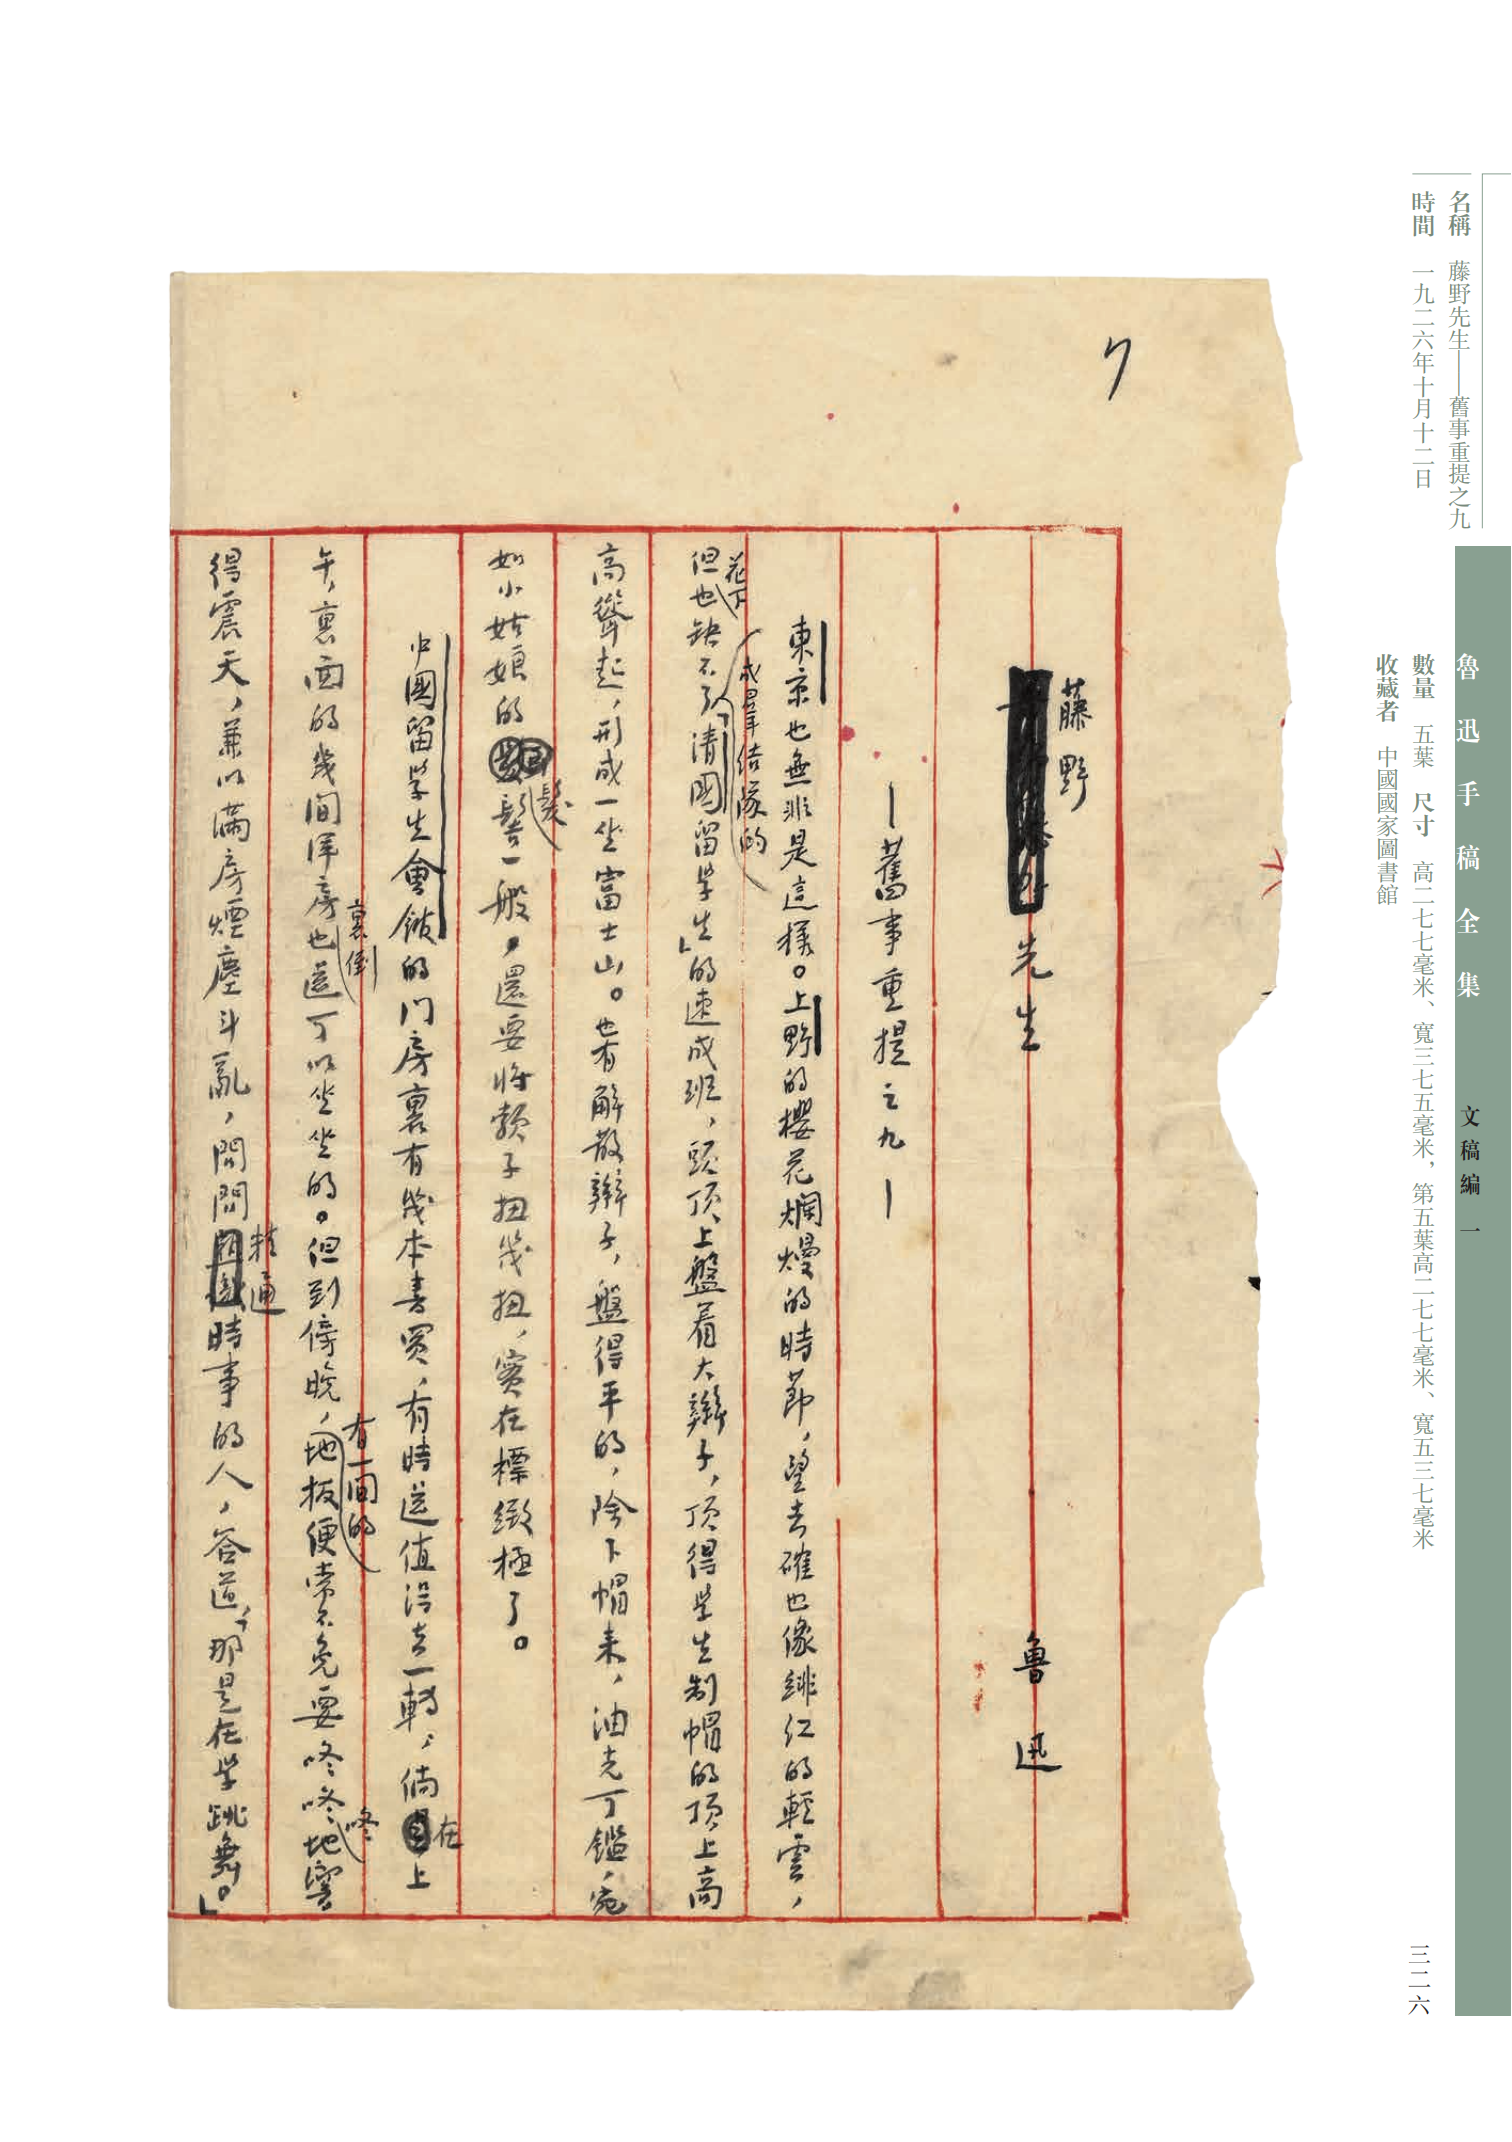 名稱　藤野先生——舊事重提之九
時間　一九二六年十月十二日
魯迅手稿全集　文稿編　一
數量　五葉　尺寸　高二七七毫米、寬三七五毫米，第五葉高二七七毫米、寬五三七毫米
收藏者　中國國家圖書館
三二六
藤野
先生　魯迅
—舊事重提之九—
東京也無非是這樣。上野的櫻花爛熳的時節，望去確也像緋紅的輕雲，
花下
成羣結隊的
但也缺不了「清國留學生」的速成班，頭頂上盤着大辮子，頂得學生制帽的頂上高
高聳起，形成一坐富士山。也有解散辮子，盤得平的，除下帽来，油光可鑑，宛
髮
如小姑娘的髻一般，還要將頸子扭幾扭，實在標緻極了。
中國留學生會館的门房裏有幾本書買，有時還值得去一轉，倘
在
上
裏倒
有一間的
咚
午，裏面的幾间洋房也還可以坐坐的。但到傍晚，地板便常不免要咚咚地響
精通
得震天，兼以滿房煙塵斗亂，問問時事的人，答道，「那是在学跳舞。」